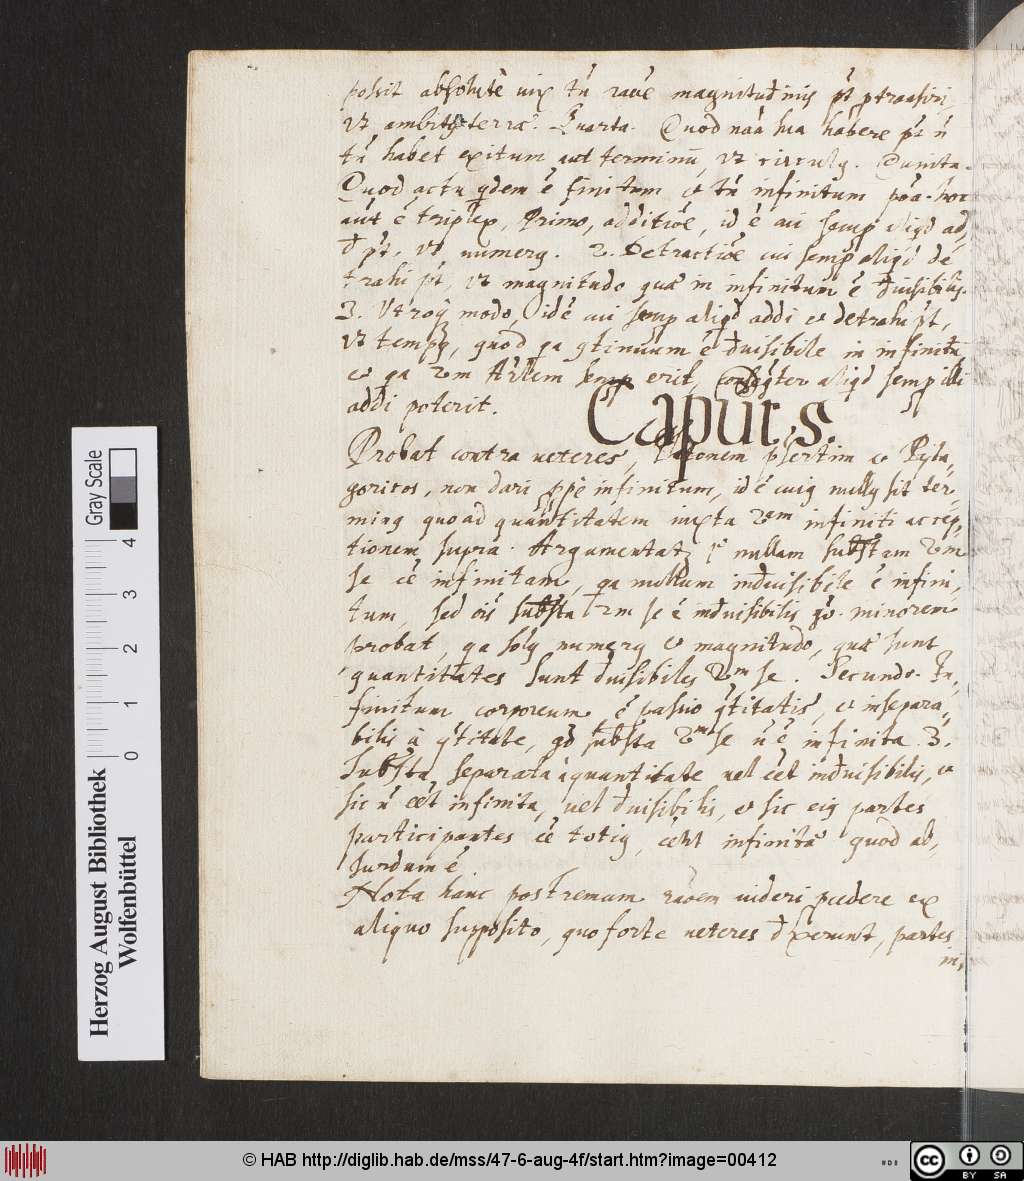 possit absolute vix tn̄ rāne magnitudinis pt̄ ptransiri,
vt ambitꝰ terræ. Quarta. Quod nāa sua habere pt n̄
tn̄ habet exitum aut terminū, vt circulꝰ. Quinta.
Quod actu qdem ē finitum & tn̄ infinitum pōa. hoc
aūt ē triplex, Primo, additiōe, id ē cui semp aliqd ad,
di pt, vt numerꝰ. 2. Detractiōe cui semp aliqd de
trahi pt, vt magnitudo quæ in infinitum ē diuisibilis.
3. Vtroqꝫ modo, id ē cui semp aliqd addi & detrahi pt,
vt tempꝰ, quod qa ꝯtinuum ē diuisibile in infinitū
& qa 2m Arlem semp erit, consequter aliqd semp illi
addi poterit.
Caput 5.
Probat contra veteres, Platonem psertim & Pyta,
goricos, non dari ppē infinitum, id ē cuiꝰ nullꝰ sit ter,
minꝰ quoad quantitatem iuxta 2am infiniti accep,
tionem supra. Argumentat 1º nullam substam 2m
se eē infinitam, qa nullum indiuisibile ē infini,
tum, sed oīs substa 2m se ē indiuisibilis gº. minorem
probat, qa solꝰ numerꝰ & magnitudo, quæ sunt
quantitates sunt diuisibiles 2m se. Secundo. In,
finitum corporeum ē passio qtitatis, & insepara,
bilis à qtitate, gº substa 2m se n̄ ē infinita. 3.
Substa separata à quantitate vel eēt indiuisibilis, &
sic n̄ eēt infinita, vel diuisibilis, & sic eiꝰ partes
participantes eē totiꝰ, eēnt infinitæ quod ab,
surdum ē.
Nota hanc postremam raōem videri pcedere ex
aliquo supposito, quo forte veteres dixerunt, partes
in,
Herzog August Bibliothek
Wolfenbüttel
0 1 2 3 4
Gray Scale
© HAB http://diglib.hab.de/mss/47-6-aug-4f/start.htm?image=00412
cc BY SA